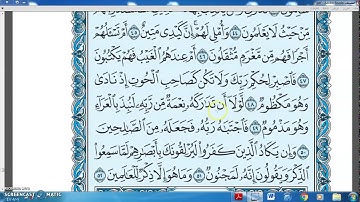 مِّنْ حَيْثُ لَا يَعْلَمُونَ ٤٤ وَأُمْلِي لَهُمْ إِنَّ كَيْدِي مَتِينٌ ٤٥ أَمْ تَسْـَٔلُهُمْ
أَجْرًا فَهُم مِّن مَّغْرَمٍ مُّثْقَلُونَ ٤٦ أَمْ عِندَهُمُ الْغَيْبُ فَهُمْ يَكْتُبُونَ
٤٧ فَاصْبِرْ لِحُكْمِ رَبِّكَ وَلَا تَكُن كَصَاحِبِ الْحُوتِ إِذْ نَادَىٰ
وَهُوَ مَكْظُومٌ ٤٨ لَّوْلَا أَن تَدَارَكَهُ نِعْمَةٌ مِّن رَّبِّهِ لَنُبِذَ بِالْعَرَاءِ
وَهُوَ مَذْمُومٌ ٤٩ فَاجْتَبَاهُ رَبُّهُ فَجَعَلَهُ مِنَ الصَّالِحِينَ
٥٠ وَإِن يَكَادُ الَّذِينَ كَفَرُوا لَيُزْلِقُونَكَ بِأَبْصَارِهِمْ لَمَّا سَمِعُوا
الذِّكْرَ وَيَقُولُونَ إِنَّهُ لَمَجْنُونٌ ٥١ وَمَا هُوَ إِلَّا ذِكْرٌ لِّلْعَالَمِينَ ٥٢
SCREENCAST MATIC